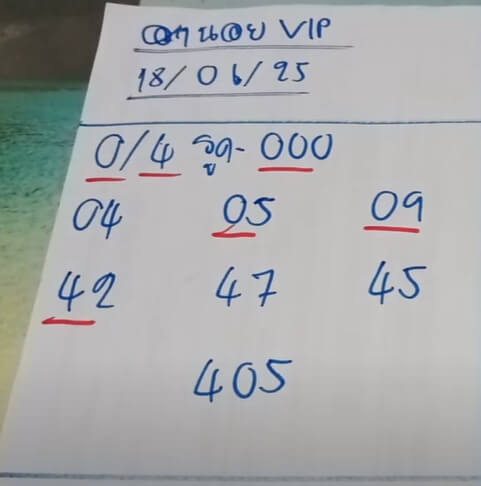 ฮานอย VIP
18/06/25
0/4 รูด- 000
04 05 09
42 47 45
405